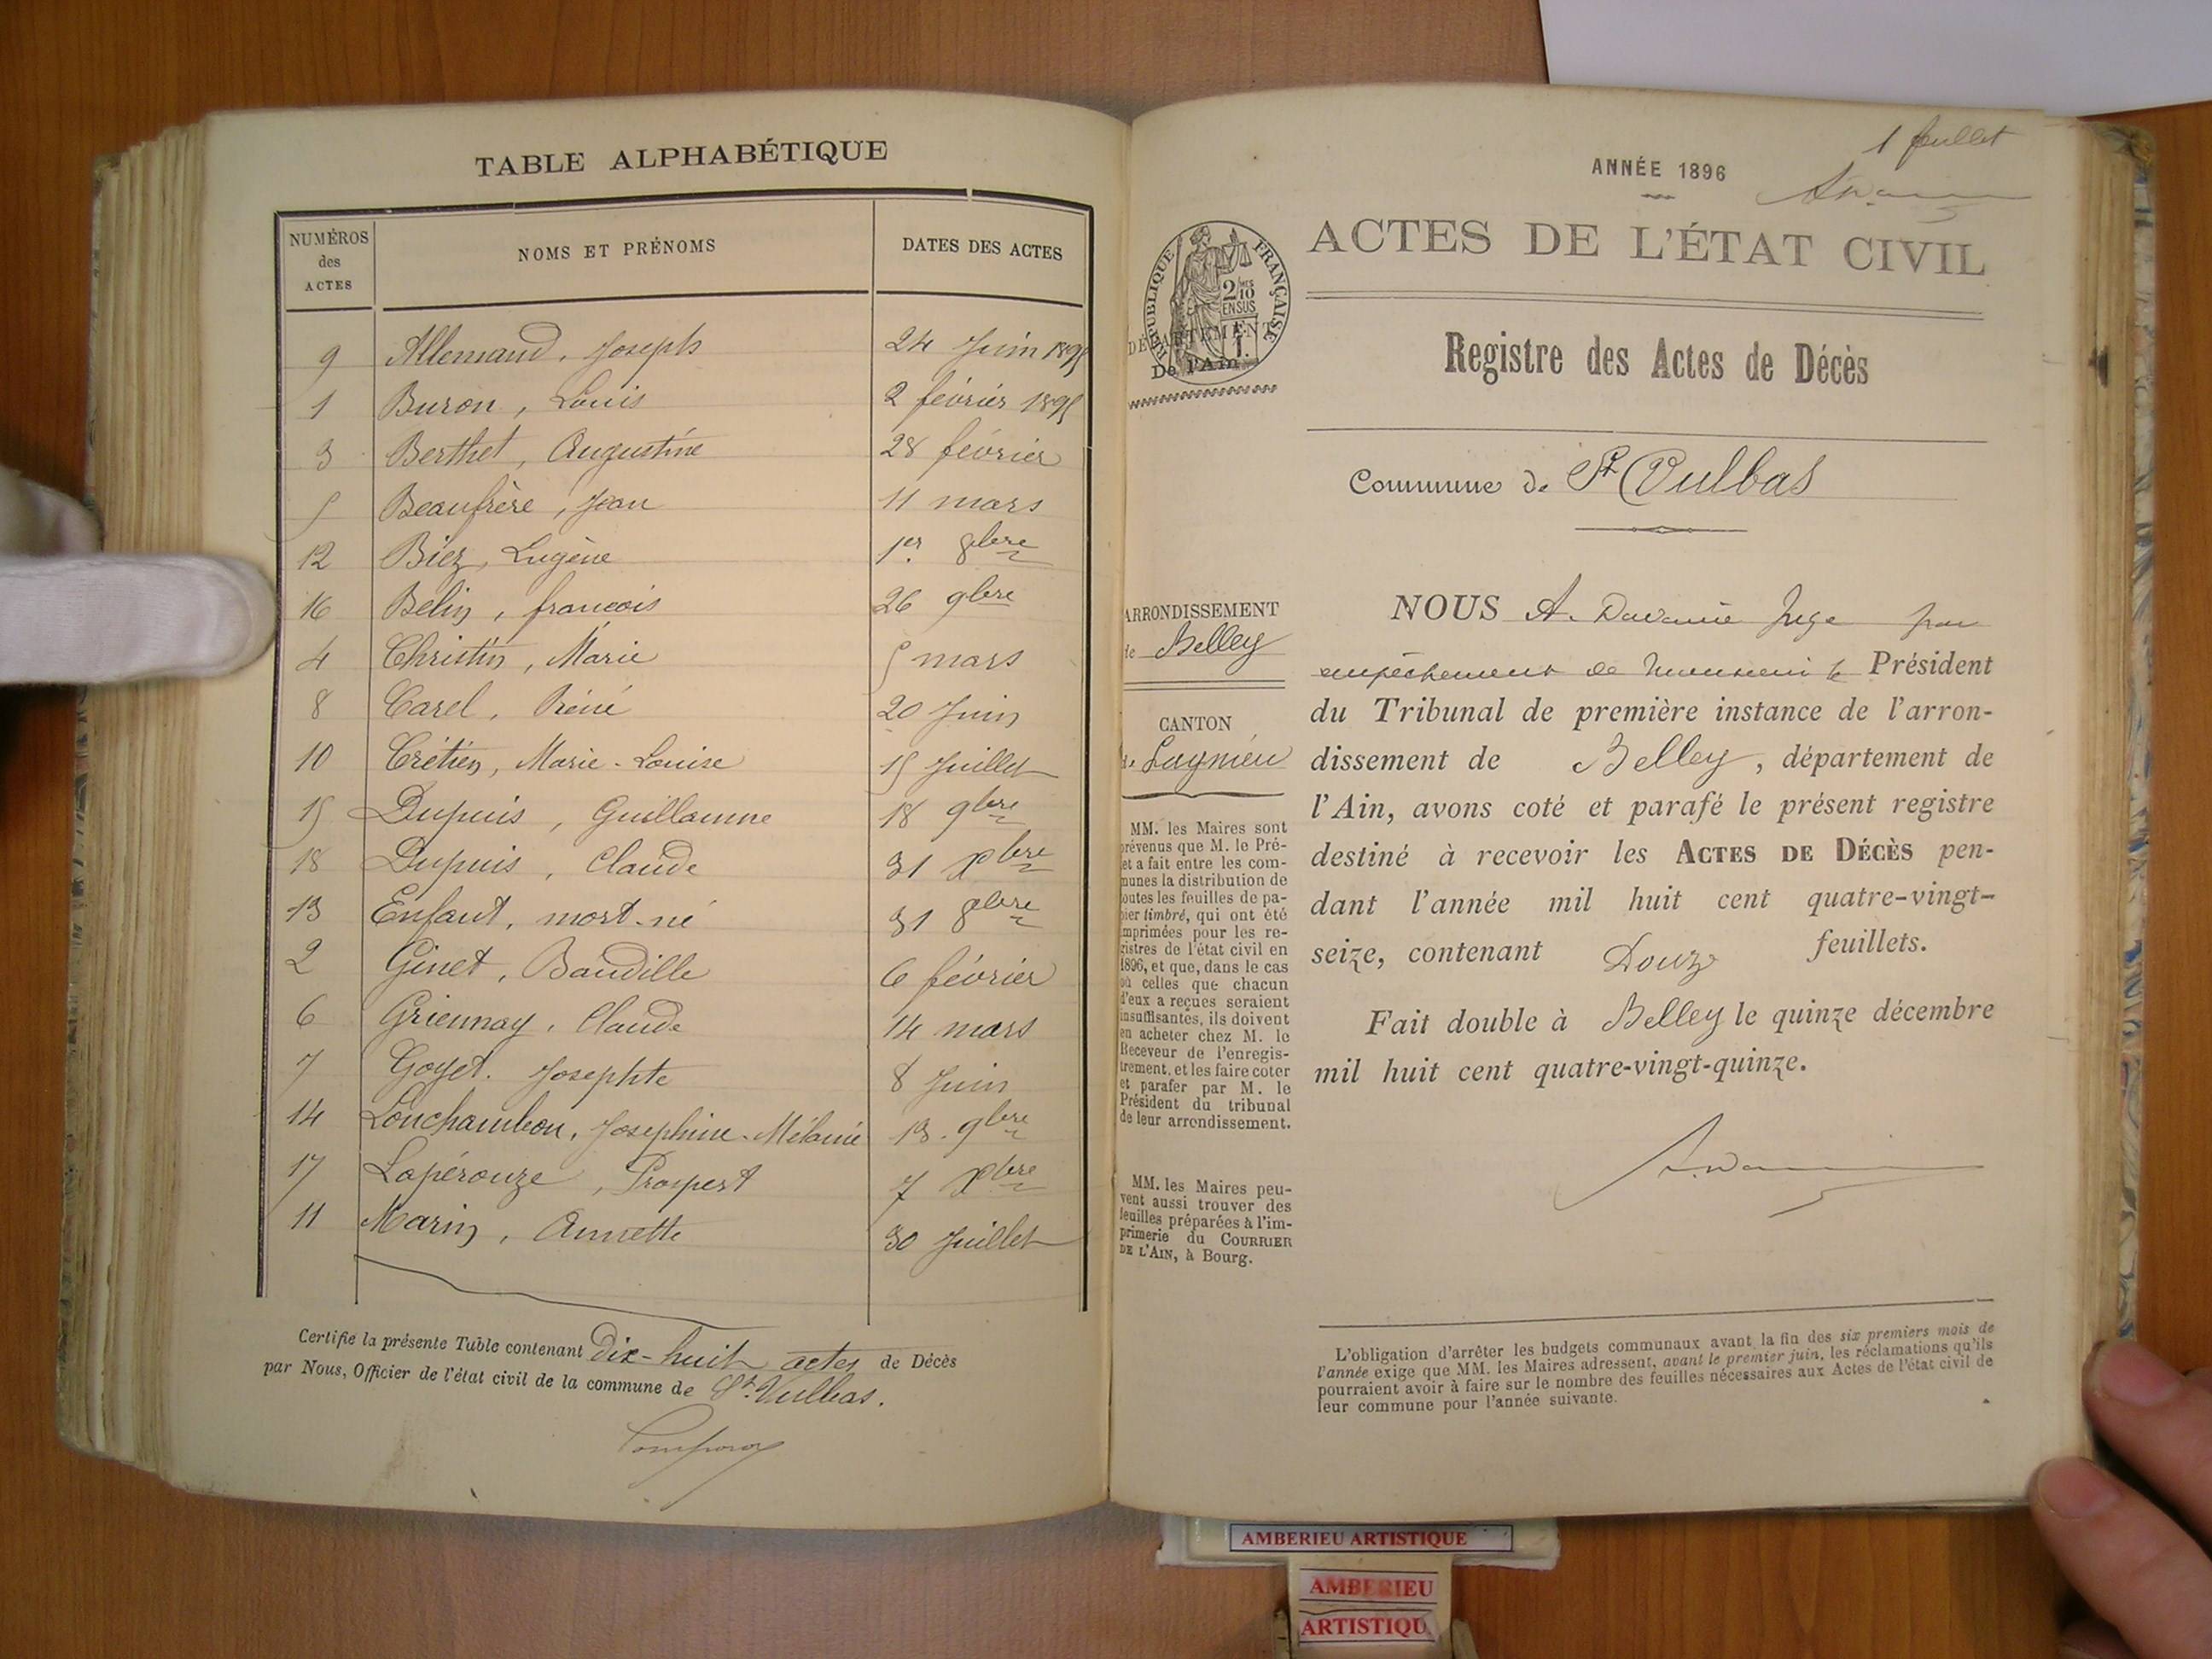 TABLE ALPHABÉTIQUE
NUMÉROS des ACTES
NOMS ET PRÉNOMS
DATES DES ACTES
9 Allemand, Joseph 24 Juin 1895
1 Buron, Louis 2 février 1895
3 Berthet, Augustine 28 février
5 Beaufrère, Jean 11 mars
12 Biez, Eugène 1er 8bre
16 Belin, françois 26 9bre
4 Christin, Marie 5 mars
8 Carel, Réné 20 Juin
10 Crétien, Marie-Louise 15 Juillet
15 Dupuis, Guillaume 18 9bre
18 Dupuis, Claude 31 Xbre
13 Enfant, mort-né 31 8bre
2 Ginet, Baudille 6 février
6 Griennay, Claude 14 mars
7 Goyet. Josephte 8 Juin
14 Lonchambon, Joséphine-Mélanie 13. 9bre
17 Lapérouze, Prospert 7 Xbre
11 Marin, Annette 30 Juillet
Certifie la présente Table contenant Dix-huit actes de Décès
par Nous, Officier de l'état civil de la commune de St. Vulbas.
1 feuillet
ANNÉE 1896
ACTES DE L'ÉTAT CIVIL
RÉPUBLIQUE FRANÇAISE
2/10 EN SUS
DÉPARTEMENT
De l'Ain.
Registre des Actes de Décès
Commune de St Vulbas
ARRONDISSEMENT
de Belley
CANTON
de Lagnieu
MM. les Maires sont
prévenus que M. le Pré-
et a fait entre les com-
munes la distribution de
toutes les feuilles de pa-
pier timbré, qui ont été
imprimées pour les re-
gistres de l'état civil en
1896, et que, dans le cas
où celles que chacun
d'eux a reçues seraient
insuffisantes, ils doivent
en acheter chez M. le
Receveur de l'enregis-
trement, et les faire coter
et parafer par M. le
Président du tribunal
de leur arrondissement.
MM. les Maires peu-
vent aussi trouver des
feuilles préparées à l'im-
primerie du COURRIER
DE L'AIN, à Bourg.
NOUS A. Juge par
empêchement de Monsieur le Président
du Tribunal de première instance de l'arron-
dissement de Belley, département de
l'Ain, avons coté et parafé le présent registre
destiné à recevoir les ACTES DE DÉCÈS pen-
dant l'année mil huit cent quatre-vingt-
seize, contenant Douze feuillets.
Fait double à Belley le quinze décembre
mil huit cent quatre-vingt-quinze.
L'obligation d'arrêter les budgets communaux avant la fin des six premiers mois de
l'année exige que MM. les Maires adressent, avant le premier juin, les réclamations qu'ils
pourraient avoir à faire sur le nombre des feuilles nécessaires aux Actes de l'état civil de
leur commune pour l'année suivante.
AMBERIEU ARTISTIQUE
AMBERIEU
ARTISTIQU